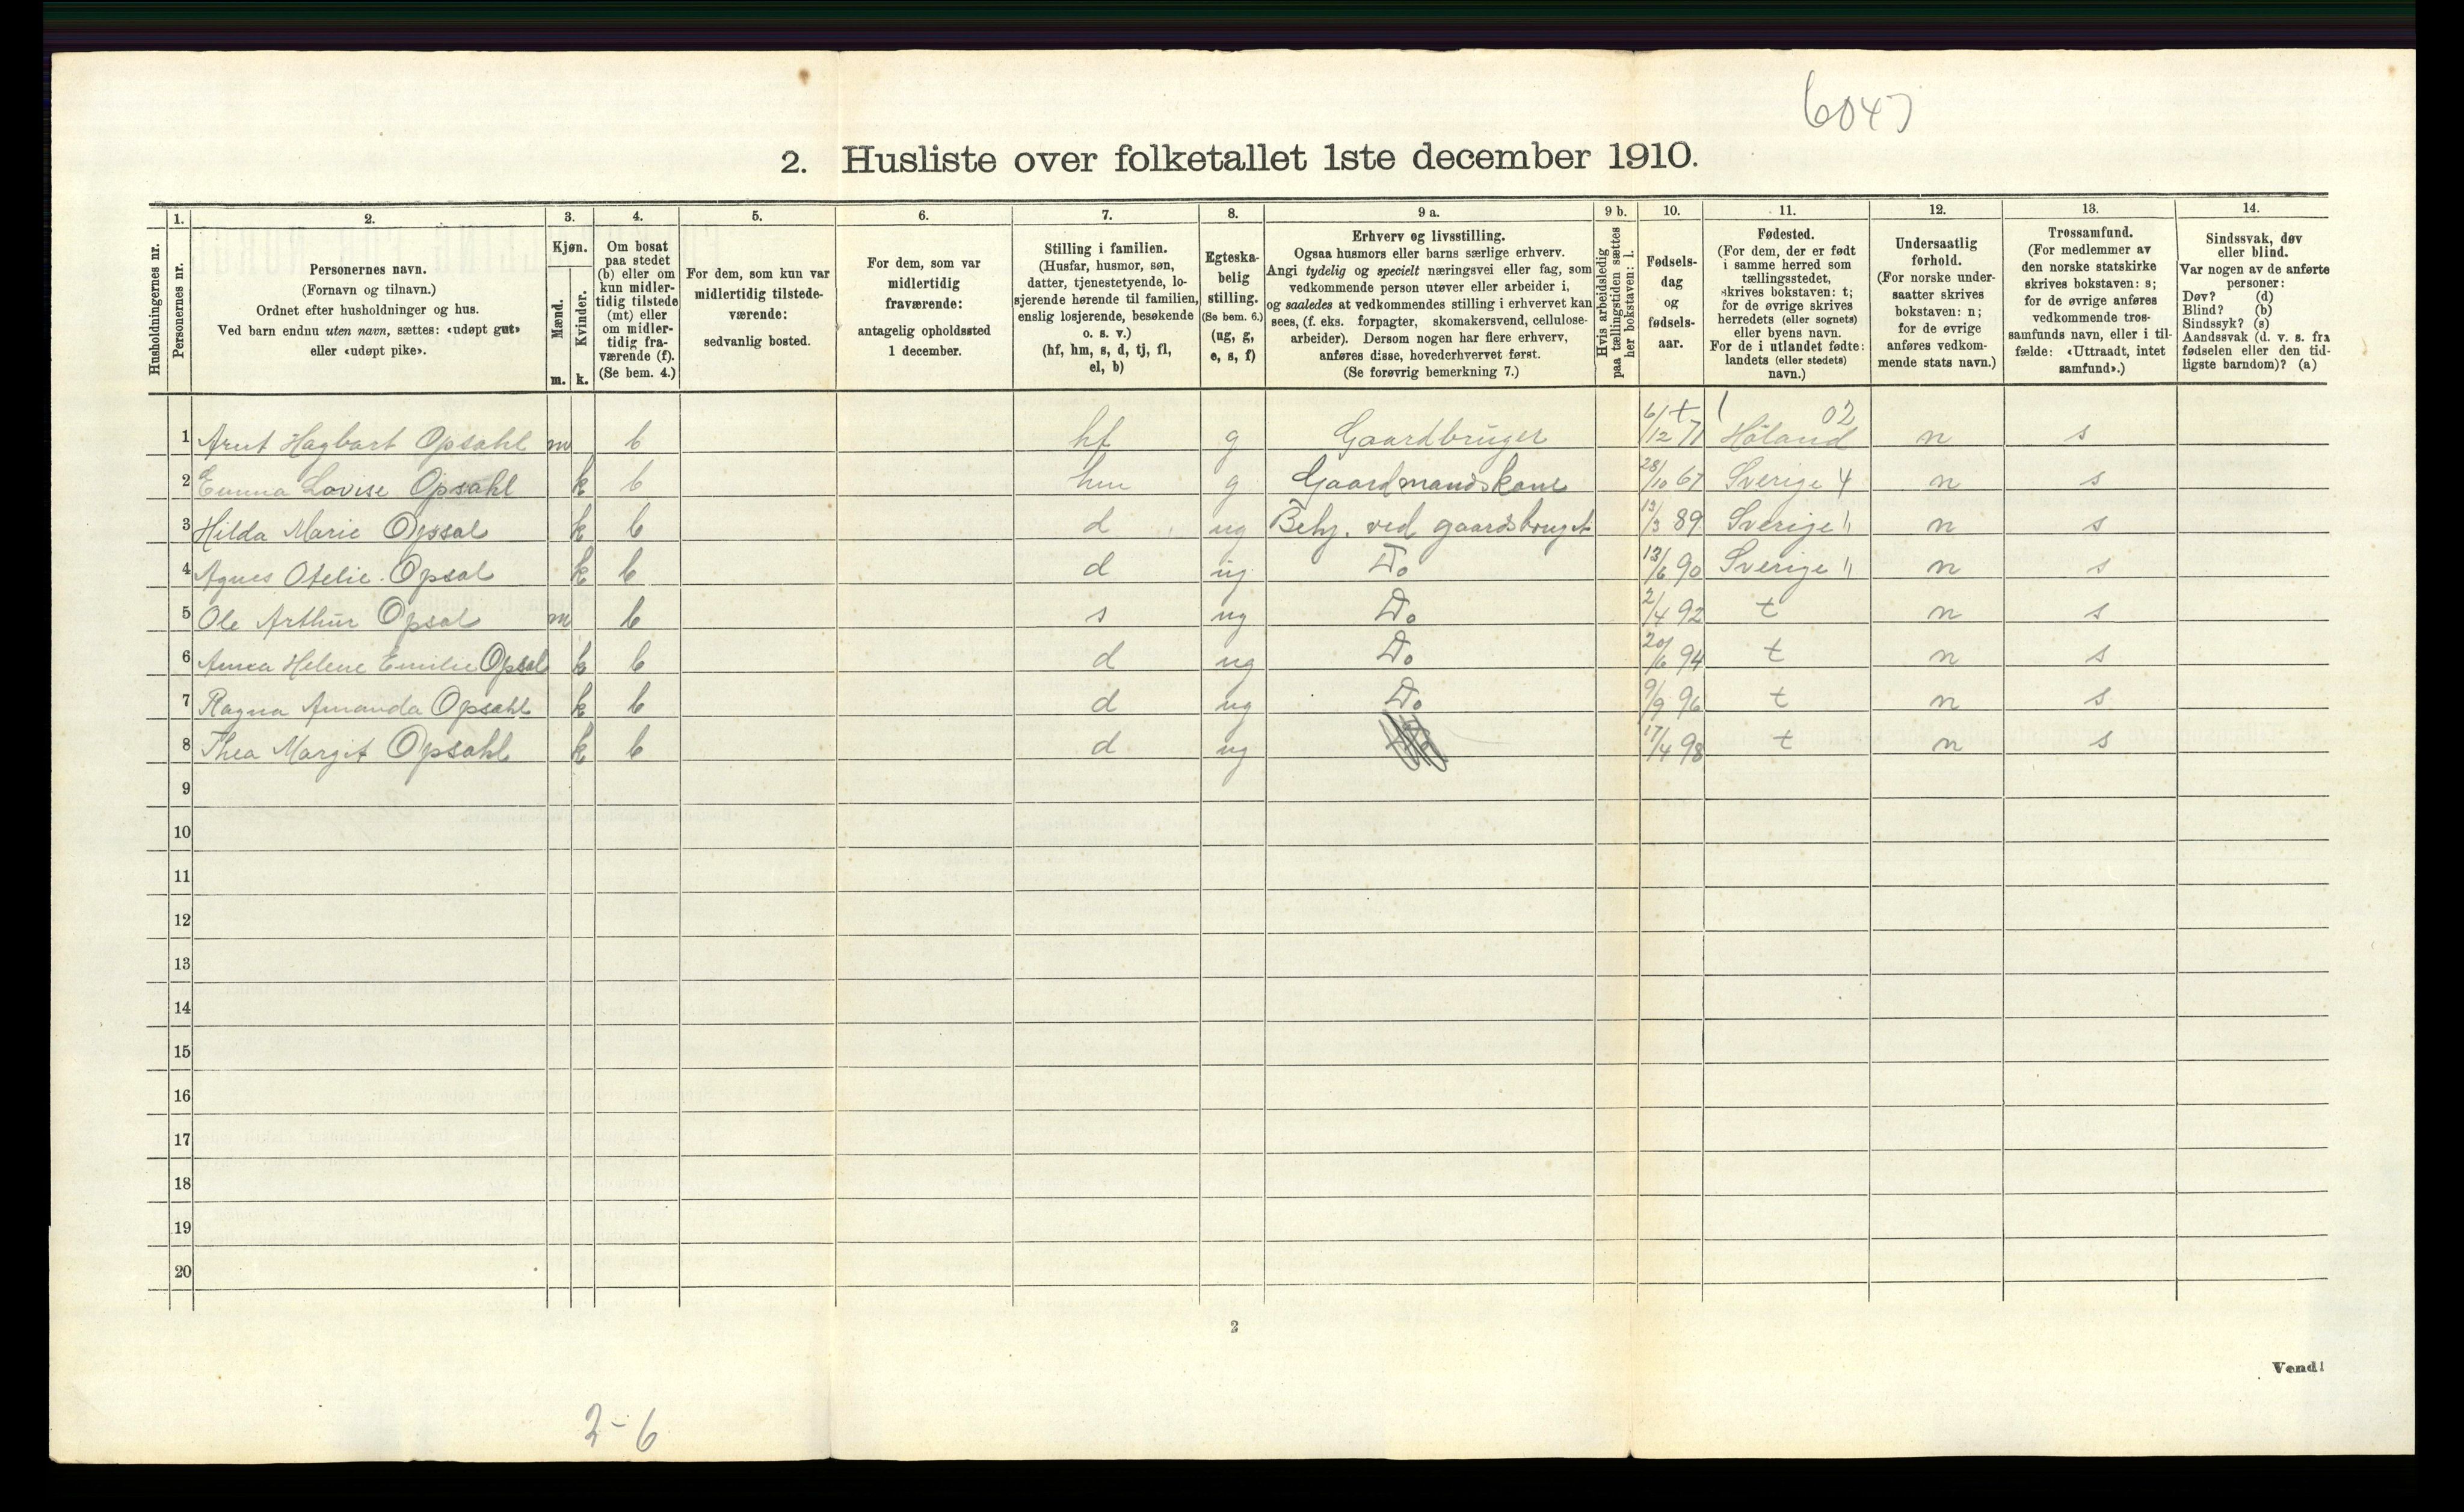 6047
2. Husliste over folketallet 1ste december 1910.
Husholdningernes nr.
1.
Personernes nr.
2.
Personernes navn.
(Fornavn og tilnavn.)
Ordnet efter husholdninger og hus.
Ved barn endnu uten navn, sættes: «udøpt gut»
eller «udøpt pike».
3.
Kjøn.
Mænd.
Kvinder.
m. k.
4.
Om bosat
paa stedet
(b) eller om
kun midler-
tidig tilstede
(mt) eller
om midler-
tidig fra-
værende (f).
(Se bem. 4.)
5.
For dem, som kun var
midlertidig tilstede-
værende:
sedvanlig bosted.
6.
For dem, som var
midlertidig
fraværende:
antagelig opholdssted
1 december.
7.
Stilling i familien.
(Husfar, husmor, søn,
datter, tjenestetyende, lo-
sjerende hørende til familien,
enslig losjerende, besøkende
o. s. v.)
(hf, hm, s, d, tj, fl,
el, b)
8.
Egteska-
belig
stilling.
(Se bem. 6.)
(ug, g,
e, s, f)
9 a.
Erhverv og livsstilling.
Ogsaa husmors eller barns særlige erhverv.
Angi tydelig og specielt næringsvei eller fag, som
vedkommende person utøver eller arbeider i,
og saaledes at vedkommendes stilling i erhvervet kan
sees, (f. eks. forpagter, skomakersvend, cellulose-
arbeider). Dersom nogen har flere erhverv,
anføres disse, hovederhvervet først.
(Se forøvrig bemerkning 7.)
9 b.
Hvis arbeidsledig
paa tællingstiden sættes
her bokstaven: l.
10.
Fødsels-
dag
og
fødsels-
aar.
11.
Fødested.
(For dem, der er født
i samme herred som
tællingsstedet,
skrives bokstaven: t;
for de øvrige skrives
herredets (eller sognets)
eller byens navn.
For de i utlandet fødte:
landets (eller stedets)
navn.)
12.
Undersaatlig
forhold.
(For norske under-
saatter skrives
bokstaven: n;
for de øvrige
anføres vedkom-
mende stats navn.)
13.
Trossamfund.
(For medlemmer av
den norske statskirke
skrives bokstaven: s;
for de øvrige anføres
vedkommende tros-
samfunds navn, eller i til-
fælde: «Uttraadt, intet
samfund».)
14.
Sindssvak, døv
eller blind.
Var nogen av de anførte
personer:
Døv? (d)
Blind? (b)
Sindssyk? (s)
Aandssvak (d. v. s. fra
fødselen eller den tid-
ligste barndom)? (a)
02
1 Arnt Hagbart Opsahl m b hf g Gaardbruger 6/12 71 Høland n s
2 Emma Lovise Opsahl k b hm g Gaardmandskone 28/10 67 Sverige 4 n s
3 Hilda Marie Opsal k b d ug Behj. ved gaardsbruget 13/3 89 Sverige " n s
4 Agnes Otelie Opsal k b d ug Do 13/6 90 Sverige " n s
5 Ole Arthur Opsal m b s ug Do 2/4 92 t n s
6 Anna Helene Emilie Opsal k b d ug Do 20/6 94 t n s
7 Ragna Amanda Opsahl k b d ug Do 9/9 96 t n s
8 Thea Margit Opsahl k b d ug 17/4 98 t n s
9
10
11
12
13
14
15
16
17
18
19
20
2
Vend!
2-6